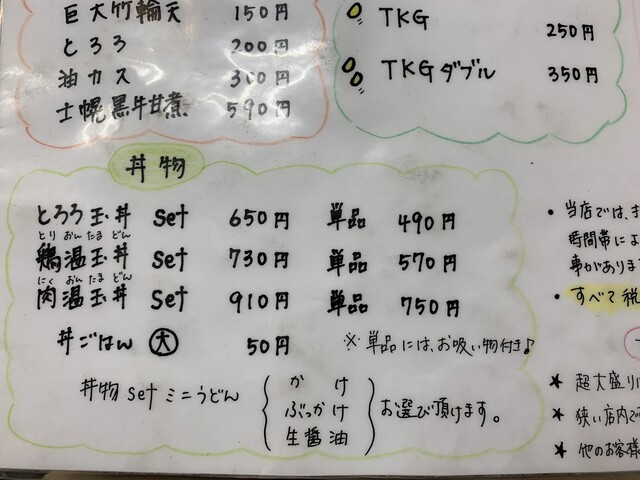 巨大竹輪天 150円
とろろ 200円
油カス 300円
士幌黒牛甘煮 590円
TKG 250円
TKGダブル 350円
丼物
とろろ玉丼 set 650円 単品 490円
とり おん たま どん
鶏温玉丼 set 730円 単品 570円
にく おん たま どん
肉温玉丼 set 910円 単品 750円
丼ごはん 大 50円
※単品には、お吸い物付き♪
丼物set ミニうどん
かけ
ぶっかけ
生醤油
お選び頂けます。
・当店では、
時間帯によ
事があります
・すべて税
★ 超大盛り
★ 狭い店内で
★ 他のお客様